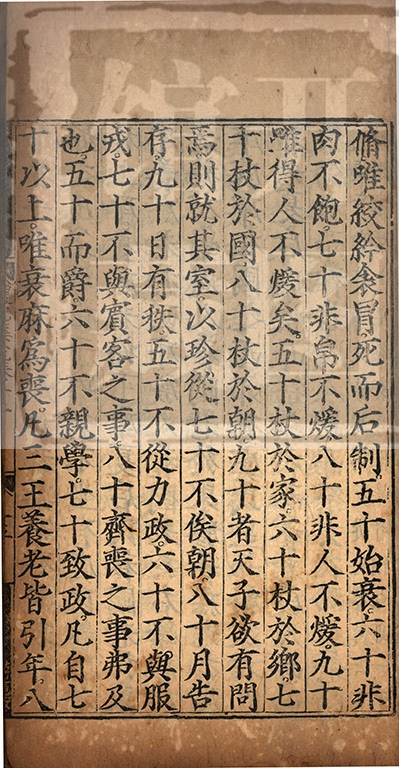 脩唯絞紟衾冒死而后制。五十始衰。六十非
肉不飽。七十非帛不煖。八十非人不煖。九十
雖得人不煖矣。五十杖於家。六十杖於鄉。七
十杖於國。八十杖於朝。九十者天子欲有問
焉則就其室。以珍從。七十不俟朝。八十月告
存。九十日有秩。五十不從力政。六十不與服
戎。七十不與賓客之事。八十齊喪之事弗及
也。五十而爵。六十不親學。七十致政。凡自七
十以上。唯衰麻爲喪。凡三王養老皆引年。八